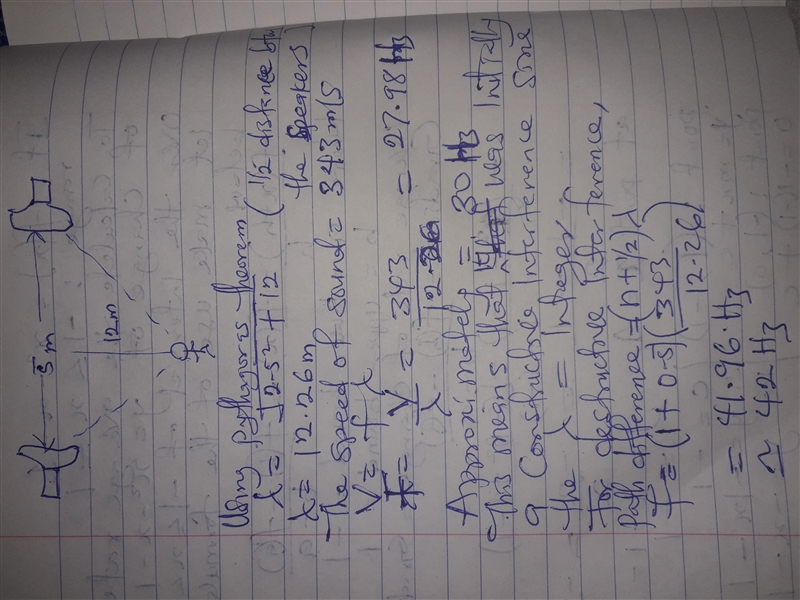 5m
12m
Using Pythygoras theorem
λ = √2.5² + 12 (1/2 distance btw the speakers
λ = 12.26m
The speed of sound = 343m/s
V = f λ
F = V/λ = 343/12.26 = 27.98 Hz
Approximately = 30 Hz
This means that was initially
a constructive Interference Sine
the λ = Integer
For destructive Interference,
Path difference = (n + 1/2) λ
f = (1 + 0.5) (343/12.26)
= 41.96 Hz
≃ 42 Hz